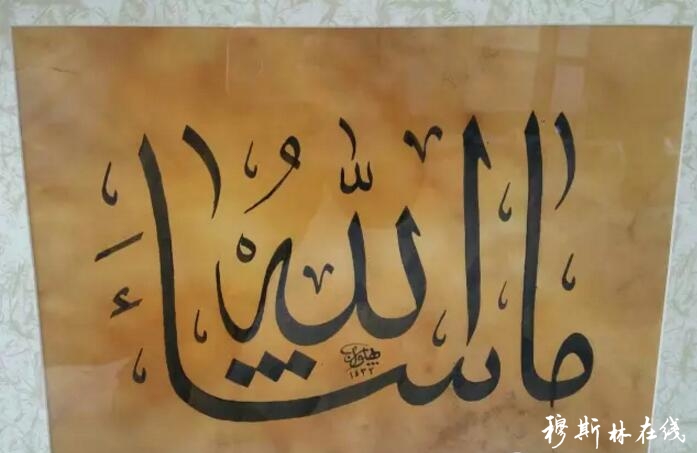 ما شاءَ اللّٰهُ
١٤٣٢
穆斯林在线